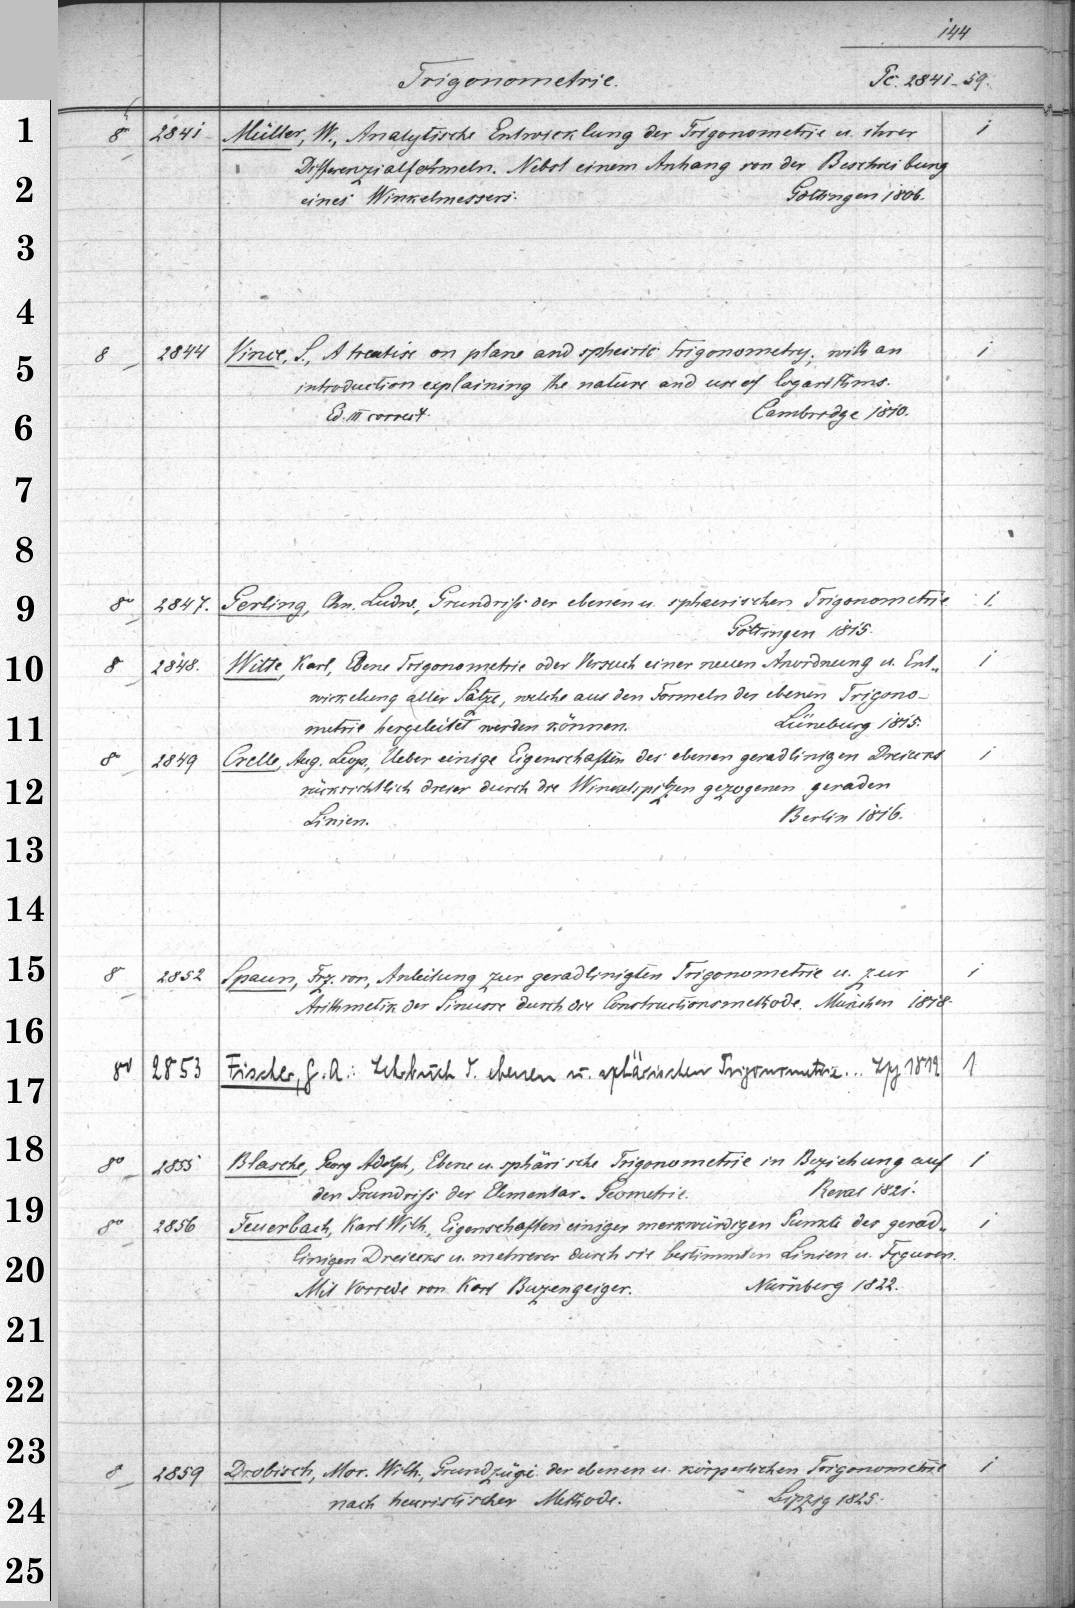 144
Trigonometrie. Pc. 2841-59.
1
8 2841 Müller, W., Analytische Entwicklung der Trigonometrie u. ihrer 1
Differenzialformeln. Nebst einem Anhang von der Beschreibung
2
eines Winkelmessers. Göttingen 1806.
3
4
8 2844 Vince, S., A treatise on plane and spheiric trigonometry; with an 1
5
introduction explaining the nature and use of logarithms.
Ed. III correct. Cambridge 1810.
6
7
8
9
8° 2847. Gerling, Chn. Ludw., Grundriß der ebenen u. sphaerischen Trigonometrie 1.
Göttingen 1815.
10
8 2848. Witte, Karl, Ebene Trigonometrie oder Versuch einer neuen Anordnung u. Ent- 1
wickelung aller Sätze, welche aus den Formeln der ebenen Trigono-
11
metrie hergeleitet werden können. Lüneburg 1815.
8 2849 Crelle, Aug. Leop., Ueber einige Eigenschaften des ebenen geradlinigen Dreiecks 1
12
rücksichtlich dreier durch die Winkelspitzen gezogenen geraden
Linien. Berlin 1816.
13
14
15
8 2852 Spaun, Frz. von, Anleitung zur geradlinigten Trigonometrie u. zur 1
Arithmetik der Sinusse durch die Constructionsmethode. München 1818.
16
8° 2853 Fischer, G. A.: Lehrbuch d. ebenen u. sphärischen Trigonometrie... Lpz 1819 1
17
18
8° 2855 Blasche, Georg Adolph, Ebene u. sphärische Trigonometrie in Beziehung auf 1
den Grundriß der Elementar-Geometrie. Reval 1821.
19
8° 2856 Feuerbach, Karl Wilh., Eigenschaften einiger merkwürdigen Punkte des gerad- 1
linigen Dreiecks u. mehrerer durch sie bestimmten Linien u. Figuren.
20
Mit Vorrede von Karl Buzengeiger. Nürnberg 1822.
21
22
23
8 2859 Drobisch, Mor. Wilh., Grundzüge der ebenen u. körperlichen Trigonometrie 1
nach heuristischer Methode. Leipzig 1825.
24
25